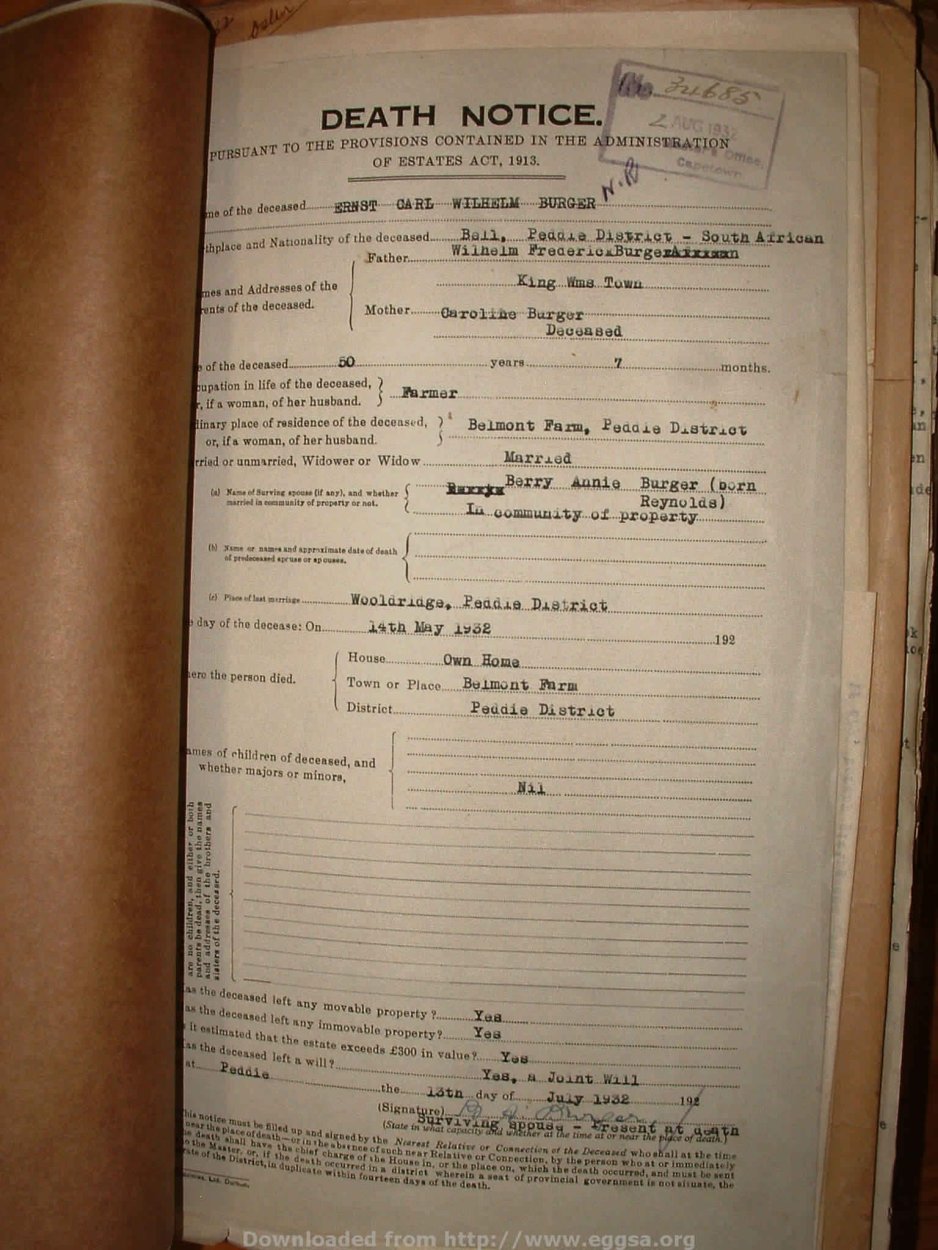 No 34685
2 AUG 1932
Office,
Capetown
DEATH NOTICE.
PURSUANT TO THE PROVISIONS CONTAINED IN THE ADMINISTRATION
OF ESTATES ACT, 1913.
me of the deceased ERNST CARL WILHELM BURGER
thplace and Nationality of the deceased Bell, Peddie District - South African
Father Wilhelm FredericxBurger
mes and Addresses of the
rents of the deceased.
King Wms Town
Mother Caroline Burger
Deceased
e of the deceased 50 years 7 months.
cupation in life of the deceased,
r, if a woman, of her husband.
Farmer
linary place of residence of the deceased,
or, if a woman, of her husband.
Belmont Farm, Peddie District
rried or unmarried, Widower or Widow Married
(a) Name of Surving spouse (if any), and whether
married in community of property or not.
Berry Annie Burger (born
Reynolds)
In community of property
(b) Name or names and approximate date of death
of predeceased spruse or spouses.
(c) Place of last marriage Wooldridge, Peddie District
e day of the decease: On 14th May 1932 192
here the person died.
House Own Home
Town or Place Belmont Farm
District Peddie District
ames of children of deceased, and
whether majors or minors,
Nil
are no children, and either or both
parents be dead, then give the names
and addresses of the brothers and
sisters of the deceased.
as the deceased left any movable property? Yes
as the deceased left any immovable property? Yes
it estimated that the estate exceeds £300 in value? Yes
as the deceased left a will? Yes, a Joint Will
at Peddie the 13th day of July 1932 192
(Signature)
Surviving spouse - Present at death
(State in what capacity and whether at the time at or near the place of death.)
his notice must be filled up and signed by the Nearest Relative or Connection of the Deceased who shall at the time
near the place of death—or in the absence of such near Relative or Connection, by the person who at or immediately
e death shall have the chief charge of the House in, or the place on, which the death occurred, and must be sent
o the Master, or, if the death occurred in a district wherein a seat of provincial government is not situate, the
rate of the District, in duplicate within fourteen days of the death.
Downloaded from http://www.eggsa.org